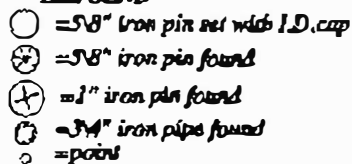 =5/8" iron pin set with I.D. cap
=5/8" iron pin found
=1" iron pin found
=3/4" iron pipe found
=point